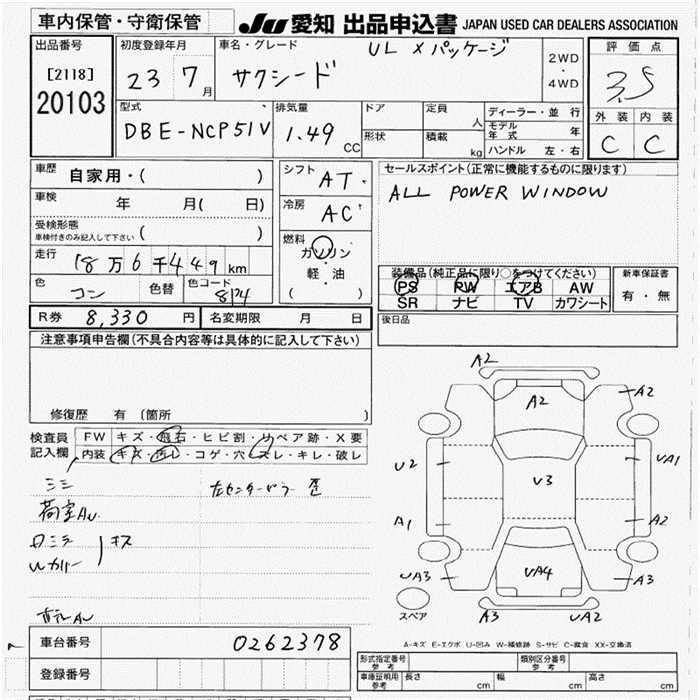 車内保管・守衛保管
JU 愛知 出品申込書 JAPAN USED CAR DEALERS ASSOCIATION
出品番号
[2118]
20103
初度登録年月
23 7 月
車名・グレード
UL Xパッケージ
サクシード
2WD
・
4WD
評価点
3.5
外装 内装
C C
型式
DBE-NCP51V
排気量
1.49 CC
ドア
形状
定員 人
積載 kg
ディーラー・並行
モデル年式 年
ハンドル 左・右
車歴 自家用・( )
車検 年 月( 日)
受検形態
車検付きのみ記入して下さい ( )
走行 18万6千449km
色 色替 色コード
8P4
シフト AT
冷房 AC
燃料
ガソリン
軽・油
( )
セールスポイント(正常に機能するものに限ります)
ALL POWER WINDOW
装備品(純正品に限り○をつけてください)
PS PW エアB AW
SR ナビ TV カワシート
新車保証書
有・無
R券 8,330 円 名変期限 月 日
後日品
注意事項申告欄(不具合内容等は具体的に記入して下さい)
修復歴 有 (箇所 )
検査員記入欄
FW キズ・飛石・ヒビ割・リペア跡・X要
内装 キズ・汚レ・コゲ・穴・スレ・キレ・破レ
荷室AU
キズ
A2
A2
A2
U2
V3
UA1
A1
A2
UA3
UA4
A3
スペア
A3
UA2
A-キズ E-エクボ U-凹み W-補修跡 S-サビ C-腐食 XX-交換済
車台番号 0262378
登録番号
形式指定番号
参考
類別区分番号
参考
車庫証明用
参考
長さ cm 幅 cm 高さ cm